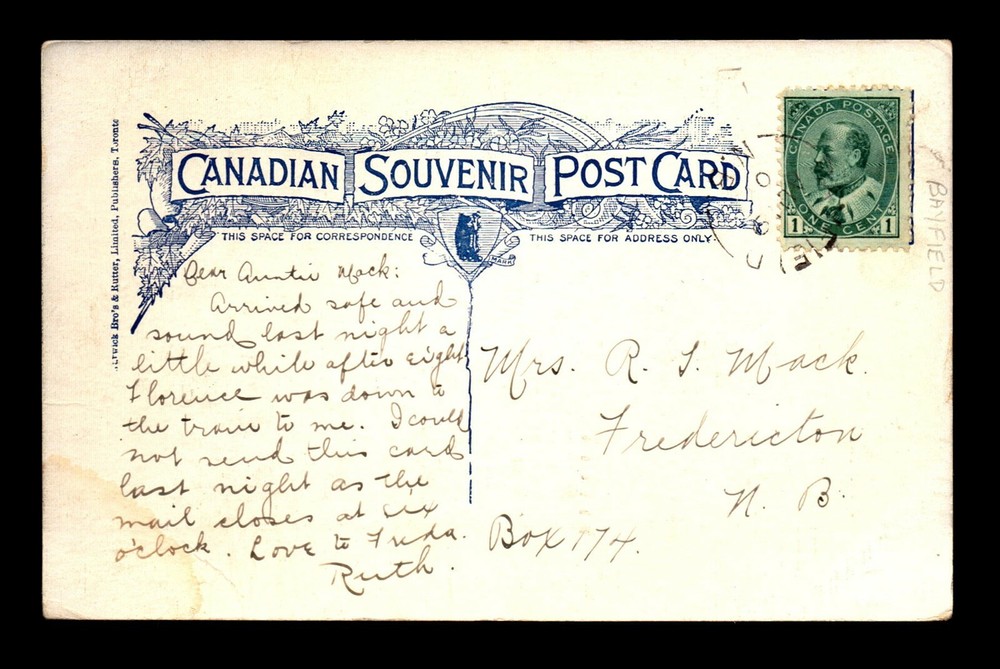 CANADIAN SOUVENIR POST CARD
THIS SPACE FOR CORRESPONDENCE
THIS SPACE FOR ADDRESS ONLY
MARK
Bro's & Rutter, Limited, Publishers, Toronto
CANADA POSTAGE
1 ONE CENT 1
BAYFIELD
Dear Auntie Mack:
Arrived safe and
sound last night a
little while after eight
Florence was down to
the train to me. I could
not send this card
last night as the
mail closes at six
o'clock. Love to Freda.
Ruth.
Mrs. R. S. Mack.
Fredericton
N. B.
Box 174.